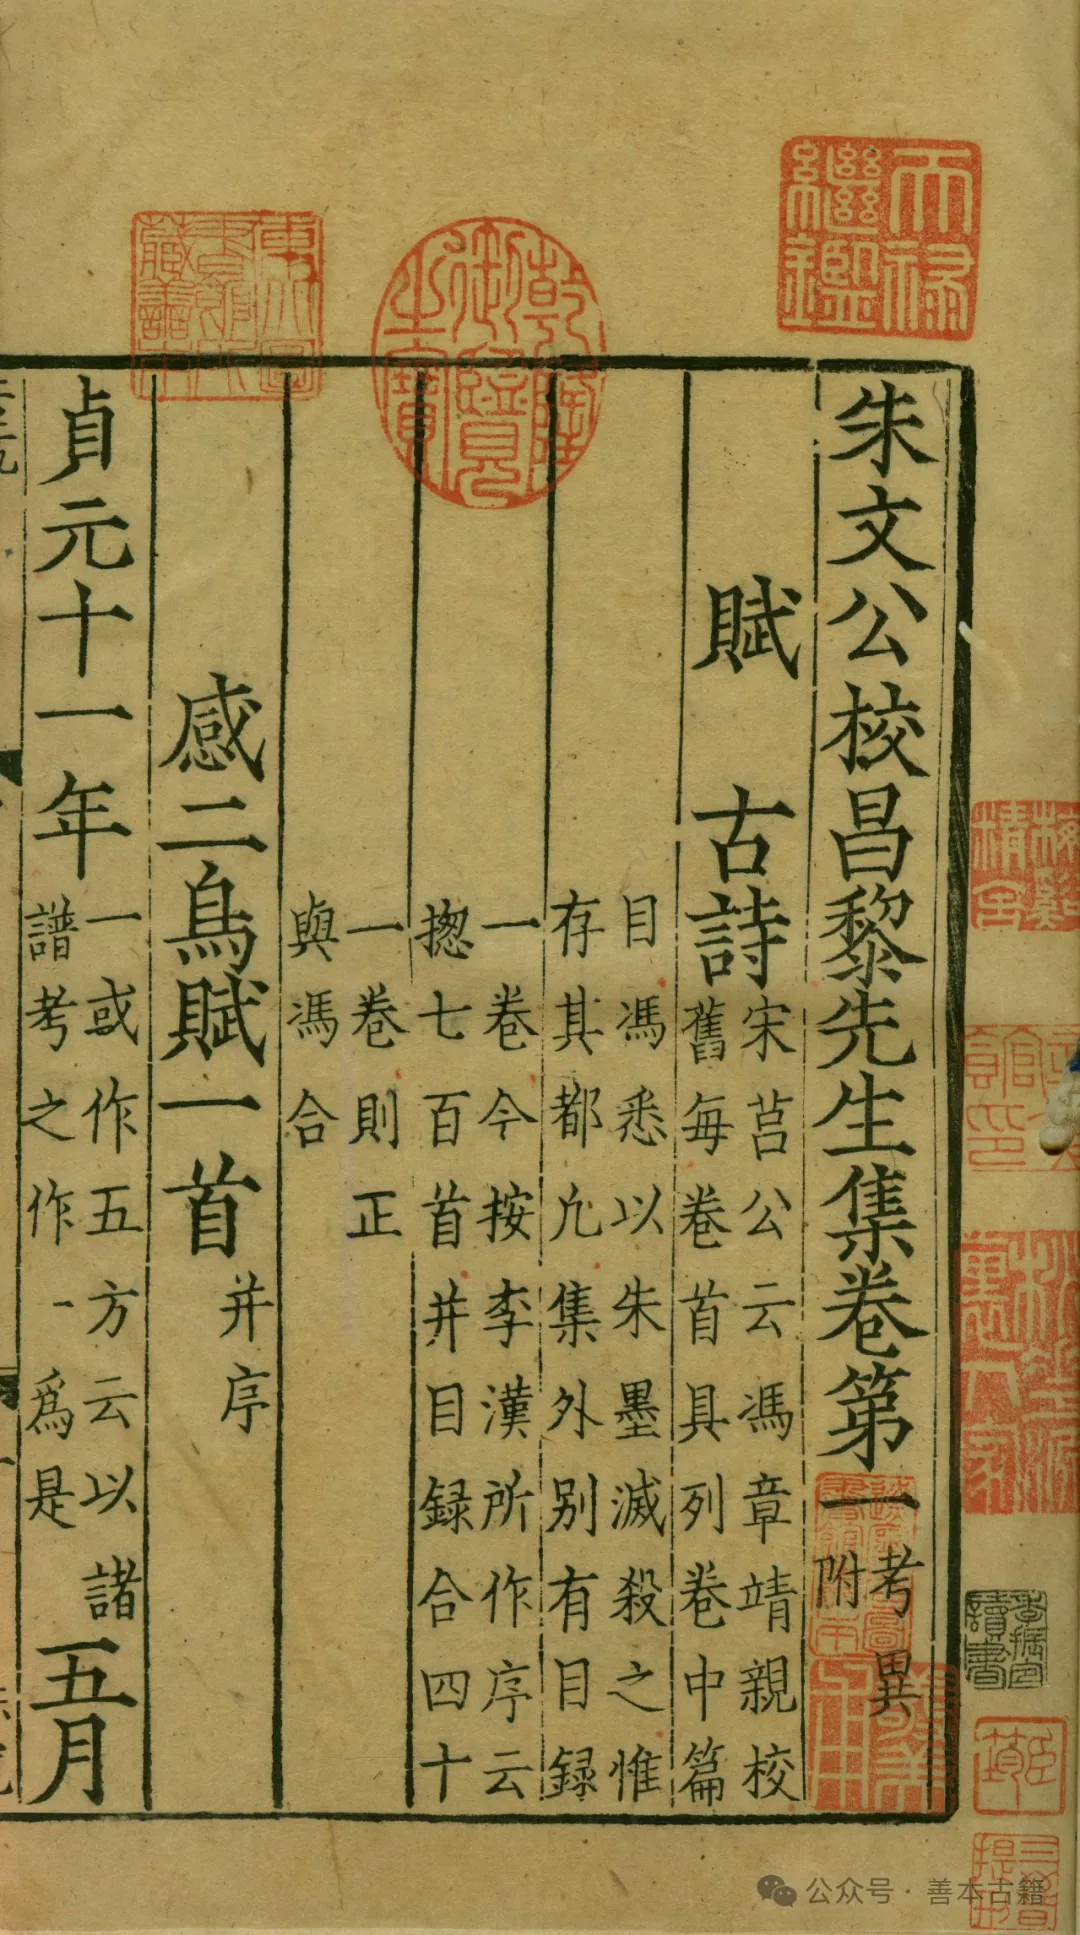 朱文公校昌黎先生集卷第一 考異附
賦 古詩 宋莒公云馮章靖親校
舊每卷首具列卷中篇
目馮悉以朱墨滅殺之惟
存其都凢集外别有目録
一卷今按李漢所作序云
揔七百首并目録合四十
一卷則正
與馮合
感二鳥賦一首 并序
貞元十一年 一或作五方云以諸
譜考之作一爲是 五月
天禄繼鑑
乾隆御覽之寶
公众号·善本古籍